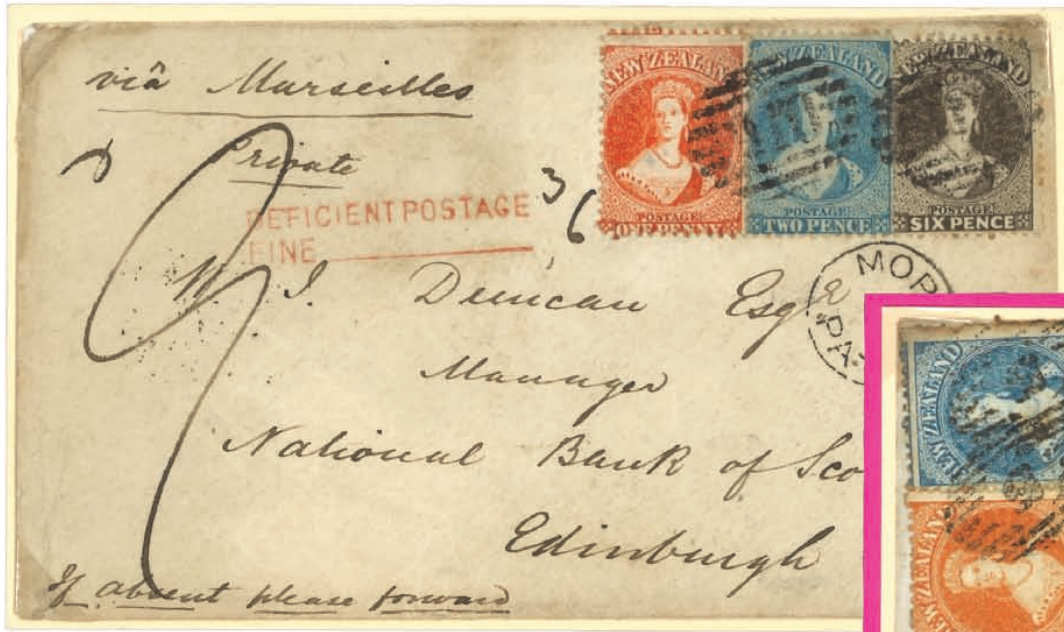 viâ Marseilles
Private
DEFICIENT POSTAGE
FINE
36
NEW ZEALAND
POSTAGE
ONE PENNY
NEW ZEALAND
POSTAGE
TWO PENCE
NEW ZEALAND
POSTAGE
SIX PENCE
W. J. Duncan Esqre
Manager
National Bank of Sco
Edinburgh
If absent please forward
MOR
PA
NEW ZEALAND
NEW ZEALAND